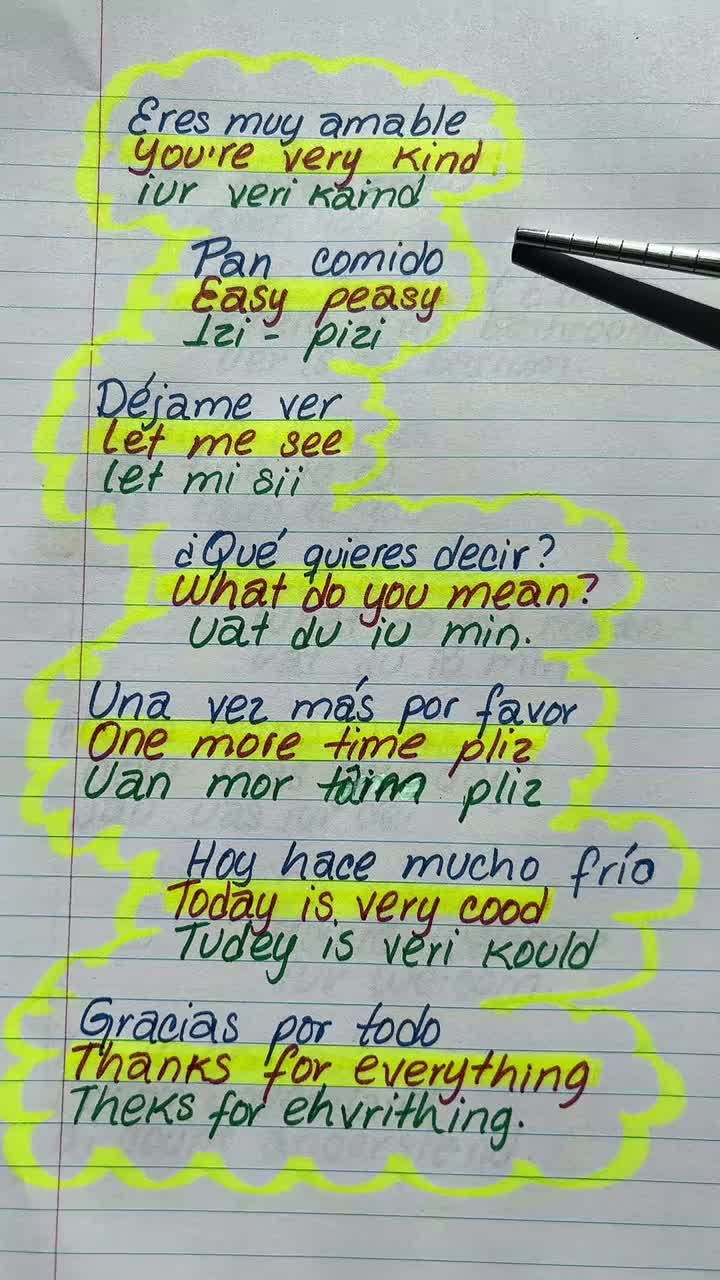 Eres muy amable
You're very kind
iur veri kaind
Pan comido
Easy peasy
Izi - pizi
Déjame ver
Let me see
let mi sii
¿Qué quieres decir?
What do you mean?
Uat du iu min.
Una vez más por favor
One more time pliz
Uan mor taim pliz
Hoy hace mucho frío
Today is very cood
Tudey is veri kould
Gracias por todo
Thanks for everything
Theks for ehvrithing.